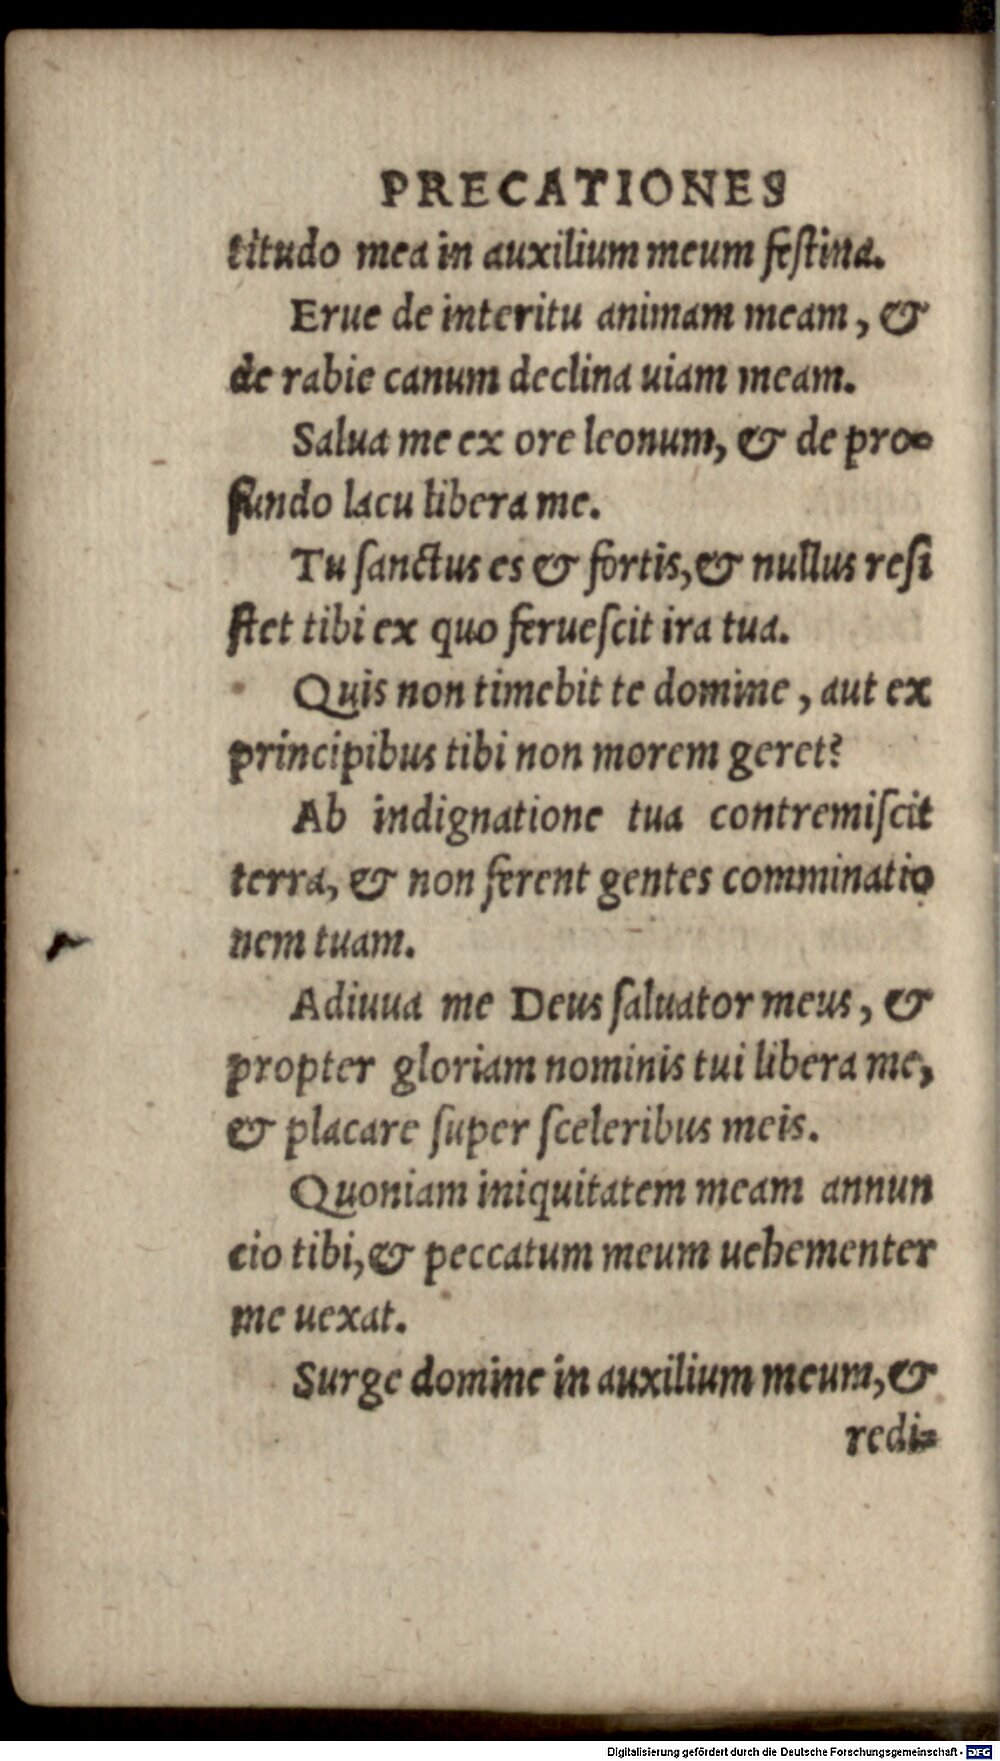 PRECATIONES
titudo mea in auxilium meum feſtina.
Erue de interitu animam meam, &
de rabie canum declina uiam meam.
Salua me ex ore leonum, & de pro-
fundo lacu libera me.
Tu ſanctus es & fortis, & nullus reſi
ſtet tibi ex quo ferueſcit ira tua.
Quis non timebit te domine, aut ex
principibus tibi non morem geret?
Ab indignatione tua contremiſcit
terra, & non ferent gentes comminatio
nem tuam.
Adiuua me Deus ſaluator meus, &
propter gloriam nominis tui libera me,
& placare ſuper ſceleribus meis.
Quoniam iniquitatem meam annun
cio tibi, & peccatum meum uehementer
me uexat.
Surge domine in auxilium meum, &
redi-
Digitalisierung gefördert durch die Deutsche Forschungsgemeinschaft - DFG